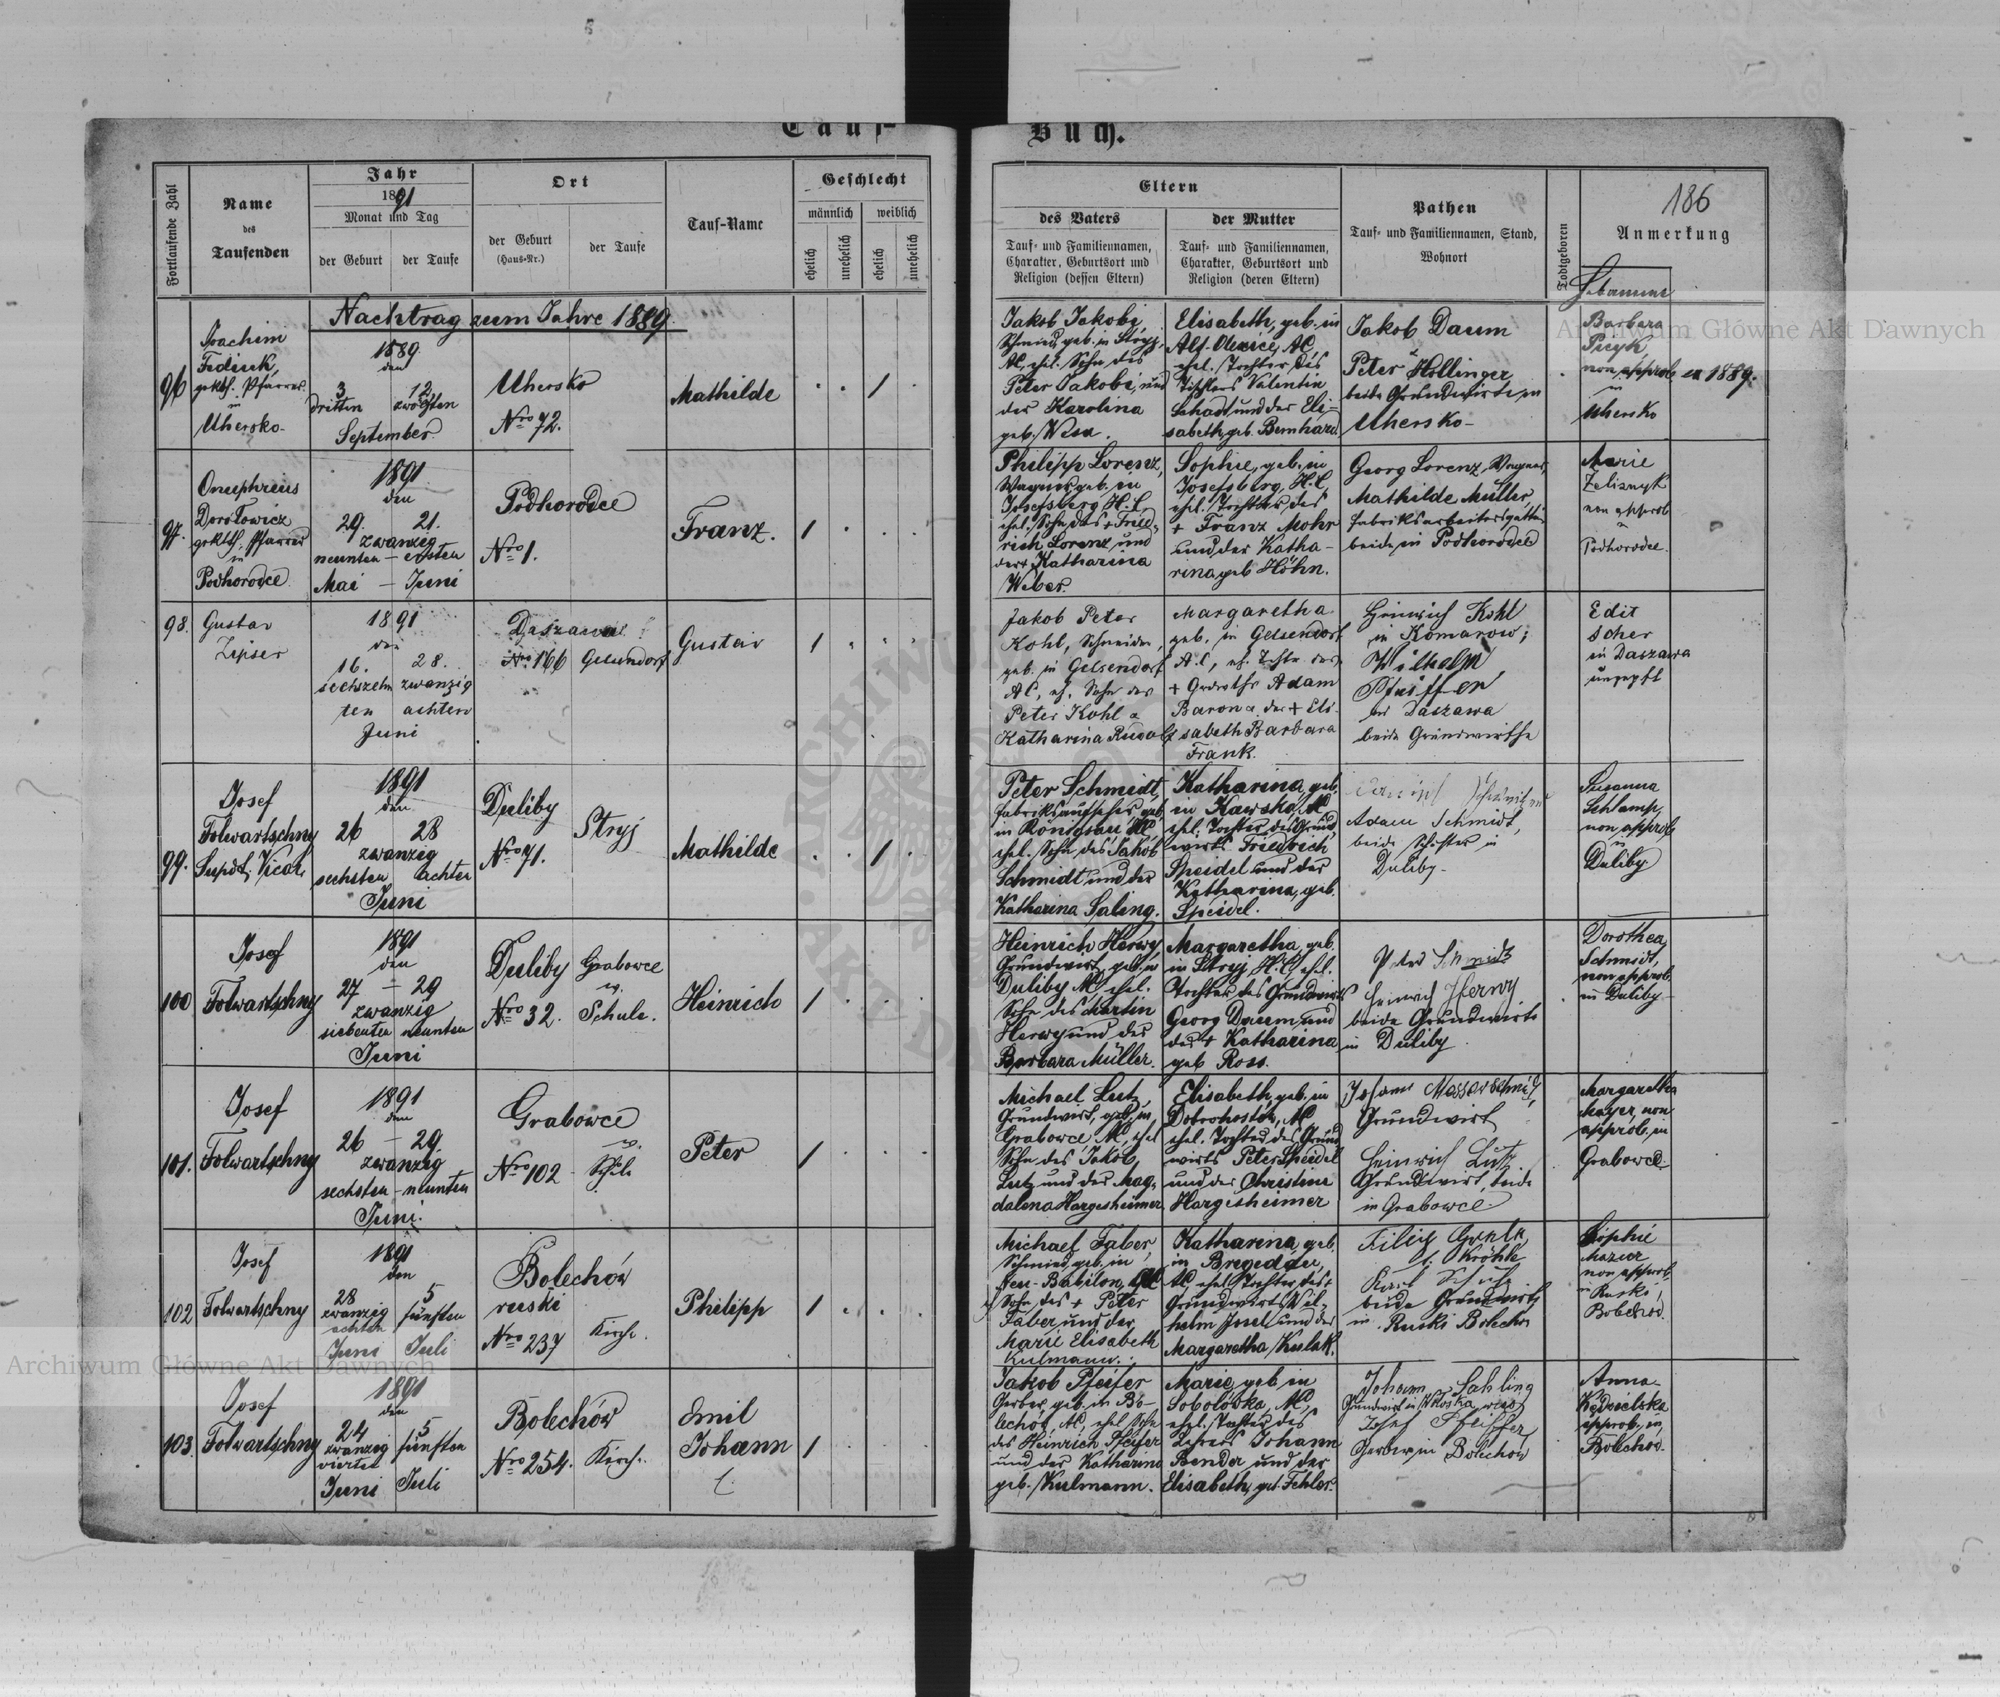 Tauf-
Buch.
Fortlaufende Zahl
Name
des
Taufenden
Jahr
1891
Monat und Tag
der Geburt
der Taufe
Ort
der Geburt
(Haus-Nr.)
der Taufe
Tauf-Name
Geschlecht
männlich
weiblich
ehelich
unehelich
ehelich
unehelich
Eltern
des Vaters
Tauf- und Familiennamen,
Charakter, Geburtsort und
Religion (dessen Eltern)
der Mutter
Tauf- und Familiennamen,
Charakter, Geburtsort und
Religion (deren Eltern)
Pathen
Tauf- und Familiennamen, Stand,
Wohnort
Todtgeboren
186
Anmerkung
Hebamme
Nachtrag zum Jahre 1889.
96
Joachim
Fediuk,
gr. kth. Pfarrer
in
Uhersko
1889
den
3 12
dritten zwölften
September
Uhersko
Nro 72.
Mathilde
1
Jakob Jakobi,
Schmied, geb. in Stryj,
AC, ehel. Sohn des
Peter Jakobi, und
der Karolina
geb.
Elisabeth, geb. in
Alf. Olexice, AC,
ehel. Tochter des
Tischlers Valentin
Schadt und der Eli-
sabeth, geb. Bernhard
Jakob Daum
Peter Hollinger
beide Grundwirte in
Uhersko
Barbara
non approb
in
Uhersko
ex 1889.
97.
Onuphrius
gr. kth. Pfarrer
in
Podhorodce
1891
den
29. 21.
zwanzig
neunten - ersten
Mai - Juni
Podhorodce
Nro 1.
Franz.
1
Philipp Lorenz,
Wagner geb. in
Josefsberg H.C.,
ehel. Sohn des + Fried-
rich Lorenz und
der + Katharina
Weber.
Sophie, geb. in
Josefsberg, H.C.,
ehel. Tochter des
+ Franz Mohr
und der Katha-
rina geb. Höhn.
Georg Lorenz, Wagner,
Mathilde Müller,
Fabriksarbeitersgattin
beide in Podhorodce
Marie
Zelisnyk
non approb
in
Podhorodce
98.
Gustav
Zipser
1891
den
16. 28.
sechszehn zwanzig
ten achten
Juni
Daszawa
Nro 166
Gelsendorf
Gustav
1
Jakob Peter
Kohl, Schneider,
geb. in Gelsendorf
AC, eh. Sohn des
Peter Kohl &
Katharina Rudolf
Margaretha
geb. in Gelsendorf
A.C, eh. Tochter des
+ Adam
Baron & der + Eli-
sabeth Barbara
Frank.
Heinrich Kohl
in Komarow;
Wilhelm
Pfeiffer
in Daszawa
beide Grundwirthe
Edit
Scher
in Daszawa
ungepft
99.
Josef
Folwartschny
Supdt. Vicar.
1891
den
26 28
zwanzig
sechsten achten
Juni
Duliby
Nro 71.
Stryj
Mathilde
1
Peter Schmidt,
Fabriksaufseher, geb.
in Königsau AC,
ehel. Sohn des Jakob
Schmidt und der
Katharina Saling.
Katharina, geb.
in Kawsko, AC
ehel. Tochter des Grund
wirts Friedrich
Speidel und der
Katharina, geb.
Speidel.
Adam Schmidt,
beide in
Duliby.
Susanna
Schlamp,
non approb
in
Duliby
100
Josef
Folwartschny
1891
den
27 - 29
zwanzig
siebenten neunten
Juni
Duliby
Nro 32.
Grabowce
Schule.
Heinrich
1
Heinrich Herwy,
Grundwirt, geb. in
Duliby AC, ehel.
Sohn des Martin
Herwy und der
Barbara Müller.
Margaretha, geb.
in Stryj, H.C, ehel.
Tochter des Grundwirts
Georg Daum und
der + Katharina
geb. Ross.
Peter Schmidt
Heinrich Herwy
beide Grundwirte
in Duliby
Dorothea
Schmidt,
non approb.
in Duliby.
101.
Josef
Folwartschny
1891
den
26 - 29.
zwanzig
sechsten - neunten
Juni.
Grabowce
Nro 102
Schule
Peter
1
Michael Lutz,
Grundwirt, geb. in
Grabowce AC, ehel
Sohn des Jakob
Lutz und der Mag-
dalena Hargesheimer
Elisabeth, geb. in
Dobrohostów, AC
ehel. Tochter des Grund
wirts Peter Speidel
und der Christine
Hargesheimer
Johann Messerschmid,
Grundwirt
Heinrich Lutz
Grundwirt, beide
in Grabowce
Margaretha
Mayer, non
approb. in
Grabowce
102
Josef
Folwartschny
1891
den
28 5
zwanzig fünften
achten
Juni Juli
Bolechów
ruski
Nro 237
Kirche.
Philipp
1
Michael Faber,
Schmied, geb. in
Neu-Babilon, AC
Sohn des + Peter
Faber und der
Marie Elisabeth
Kulmann.
Katharina, geb.
in Brigidau,
AC, ehel. Tochter des +
Grundwirts Wil-
helm Josel und der
Margaretha Kuslak.
Karl
beide Grundwirte
in Ruski Bolechów
Sophie
Mazur
non approb,
in Ruski
Bolechów.
103.
Josef
Folwartschny
1891
den
24 5
zwanzig fünften
vierten
Juni Juli
Bolechów
Nro 254.
Kirche.
Emil
Johann
1
Jakob Pfeifer
Gerber, geb. in Bo-
lechów, AC, ehel Sohn
des Heinrich Pfeifer
und der Katharina
geb. Kulmann.
Marie, geb in
Sobolówka, AC,
ehel. Tochter des
Lehrers Johann
Bender und der
Elisabeth, geb. Fehler.
Johann Sahling
Josef Pfeiffer
Gerber in Bolechów
Anna
Kędzielska
approb, in
Bolechów.
Archiwum Główne Akt Dawnych
Archiwum Główne Akt Dawnych